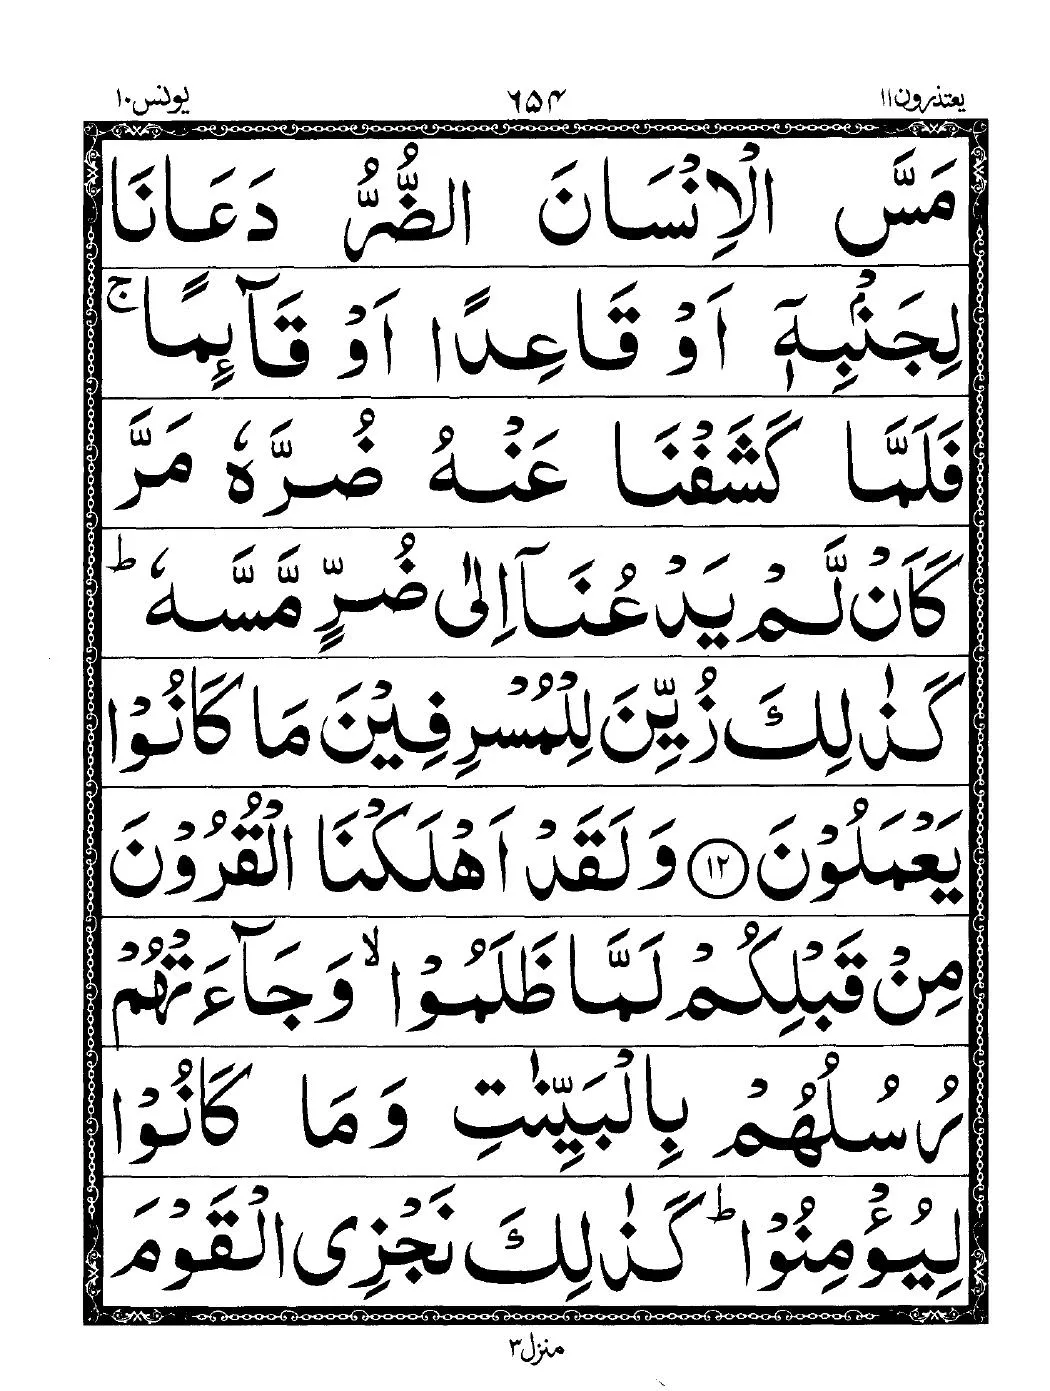 یعتذرون۱۱ ۶۵۴ یونس۱۰
مَسَّ الْاِنْسَانَ الضُّرُّ دَعَانَا
لِجَنْۢبِهٖۤ اَوْ قَاعِدًا اَوْ قَآىِٕمًا ۚ
فَلَمَّا كَشَفْنَا عَنْهُ ضُرَّهٗ مَرَّ
كَاَنْ لَّمْ یَدْعُنَاۤ اِلٰى ضُرٍّ مَّسَّهٗ ؕ
كَذٰلِكَ زُیِّنَ لِلْمُسْرِفِیْنَ مَا كَانُوْا
یَعْمَلُوْنَ ﴿۱۲﴾ وَ لَقَدْ اَهْلَكْنَا الْقُرُوْنَ
مِنْ قَبْلِكُمْ لَمَّا ظَلَمُوْا ۙ وَ جَآءَتْهُمْ
رُسُلُهُمْ بِالْبَیِّنٰتِ وَ مَا كَانُوْا
لِیُؤْمِنُوْا ؕ كَذٰلِكَ نَجْزِی الْقَوْمَ
منزل۳